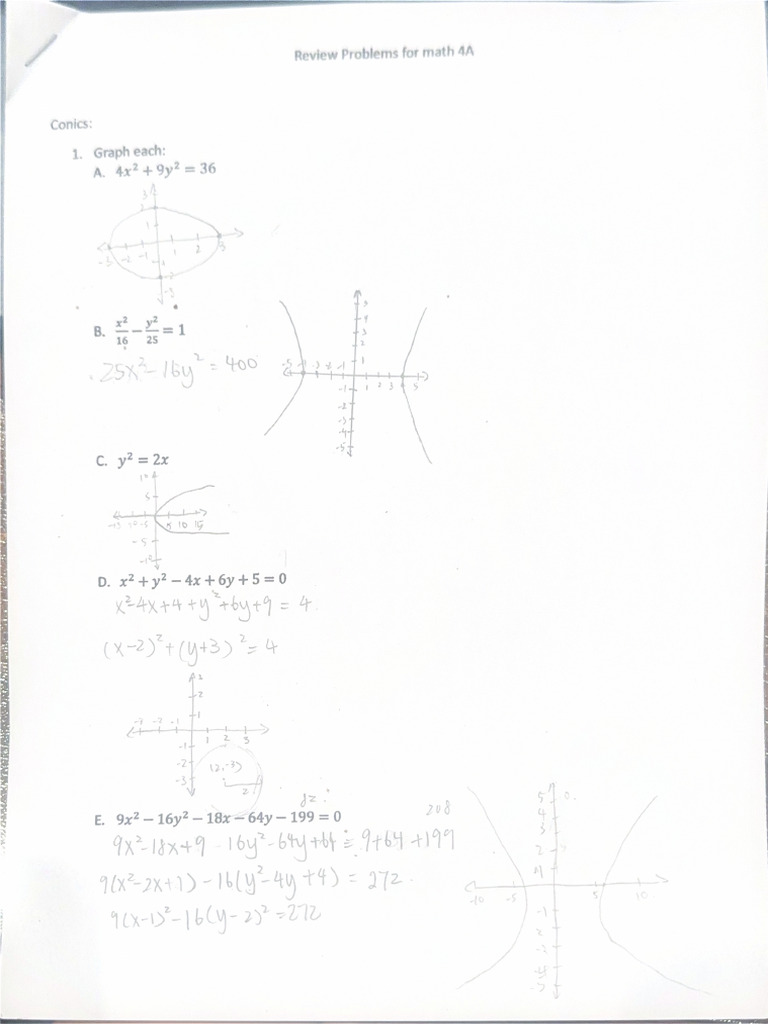 Review Problems for math 4A
Conics:
1. Graph each:
A. 4x² + 9y² = 36
3
2
1
-3 -2 -1 1 2 3
-2
-3
B. x²/16 − y²/25 = 1
25x² − 16y² = 400
5
4
3
2
1
-5 -4 -3 -2 -1 1 2 3 5
-1
-2
-3
-4
-5
C. y² = 2x
10
5
-15 -10 -5 5 10 15
-5
-10
D. x² + y² − 4x + 6y + 5 = 0
x²-4x+4+y²+6y+9 = 4
(x-2)²+(y+3)² = 4
2
1
-2 -1 1 2 3
-1
-2
-3
(2,-3)
2
E. 9x² − 16y² − 18x − 64y − 199 = 0
208
9x²-18x+9 - 16y²-64y+64 = 9+64+199
9(x²-2x+1) - 16(y²-4y+4) = 272
9(x-1)² - 16(y-2)² = 272
5
4
3
2
-10 -5 5 10
-1
-2
-5